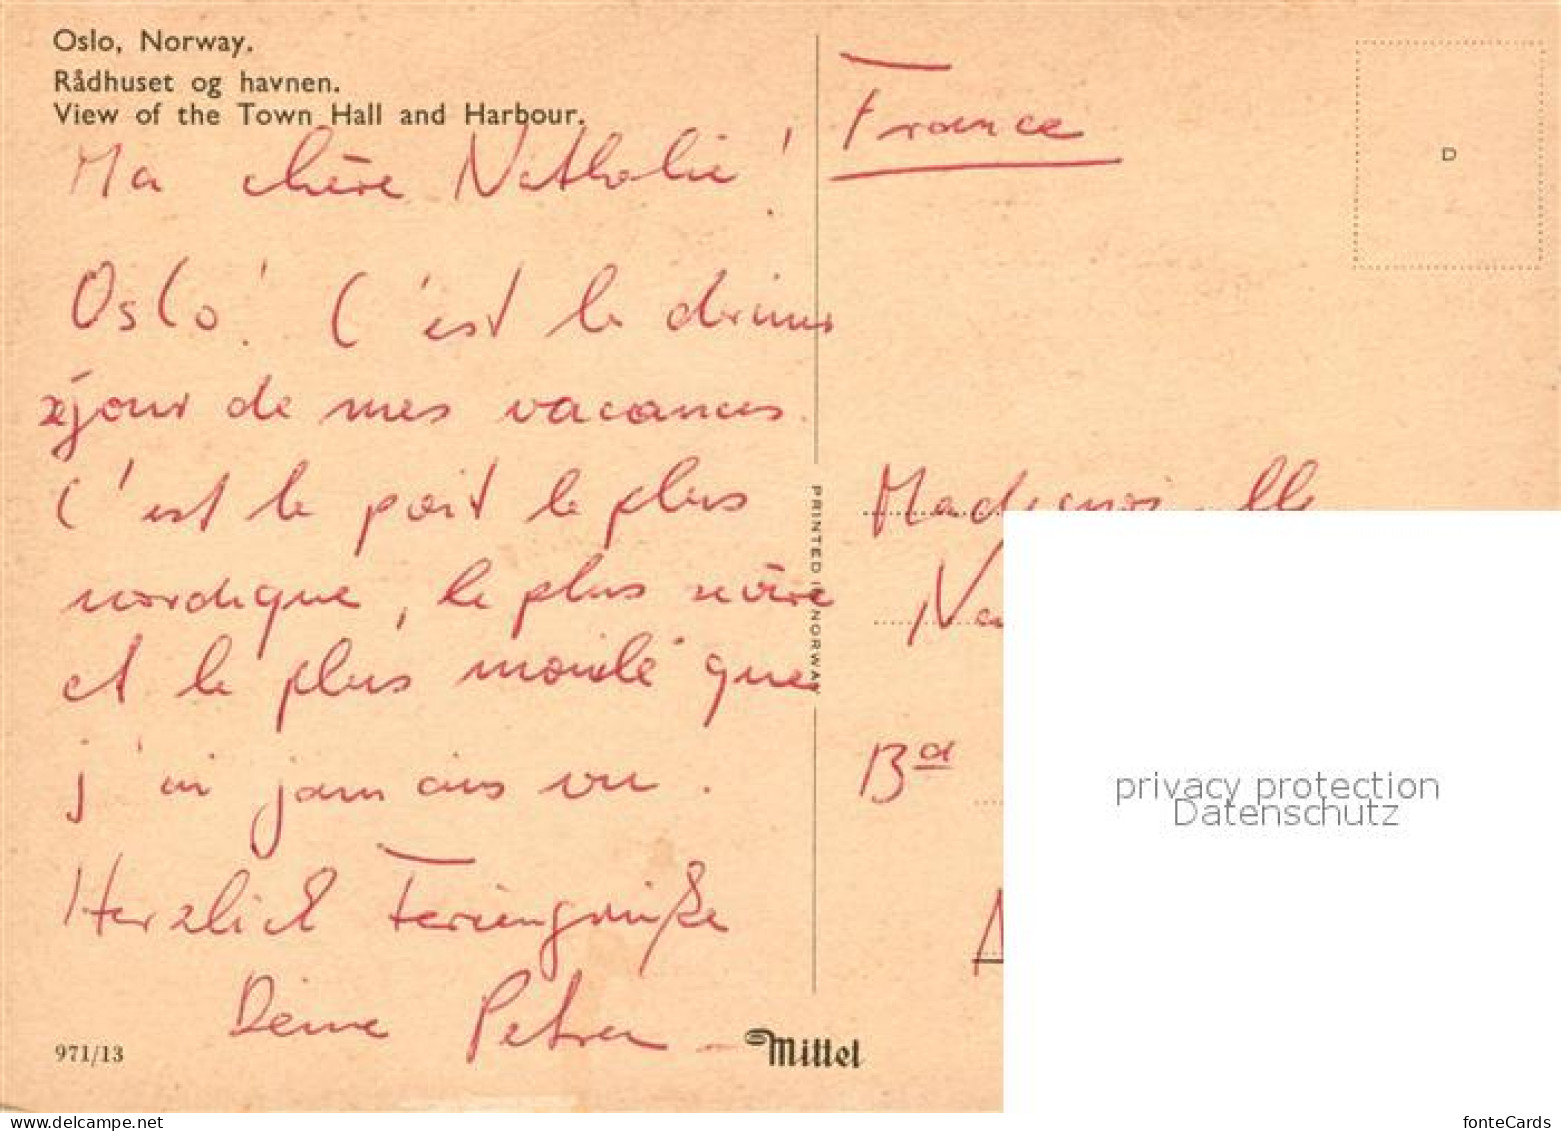 Oslo, Norway.
Rådhuset og havnen.
View of the Town Hall and Harbour.
Ma chère Nathalie!
Oslo! C'est le dernier
séjour de mes vacances.
C'est le port le plus
nordique, le plus sévère
et le plus que
j'ai jamais vu.
Herzlich Feriengrüße
Deine Petra
971/13
Mittel
PRINTED IN NORWAY
France
D
Mademoiselle
Na
Bd
privacy protection
Datenschutz
www.delcampe.net
fonteCards